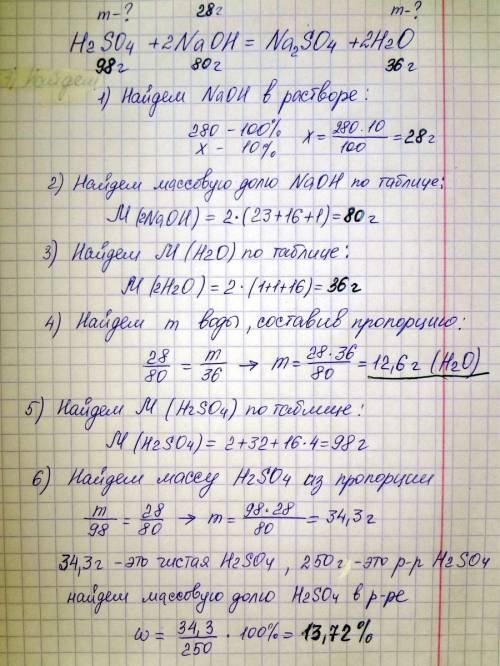 m-? 28г m-?
H₂SO₄ + 2NaOH = Na₂SO₄ + 2H₂O
98г 80г 36г
1) Найдем NaOH в растворе:
280 – 100%
x – 10%
x = 280·10/100 = 28г
2) Найдем массовую долю NaOH по таблице:
M(2NaOH) = 2·(23+16+1) = 80г
3) Найдем M(H₂O) по таблице:
M(2H₂O) = 2·(1+1+16) = 36г
4) Найдем m воды, составив пропорцию:
28/80 = m/36 → m = 28·36/80 = 12,6г (H₂O)
5) Найдем M(H₂SO₄) по таблице:
M(H₂SO₄) = 2+32+16·4 = 98г
6) Найдем массу H₂SO₄ из пропорции
m/98 = 28/80 → m = 98·28/80 = 34,3г
34,3г – это чистая H₂SO₄, 250г – это р-р H₂SO₄
найдем массовую долю H₂SO₄ в р-ре
ω = 34,3/250 · 100% = 13,72%